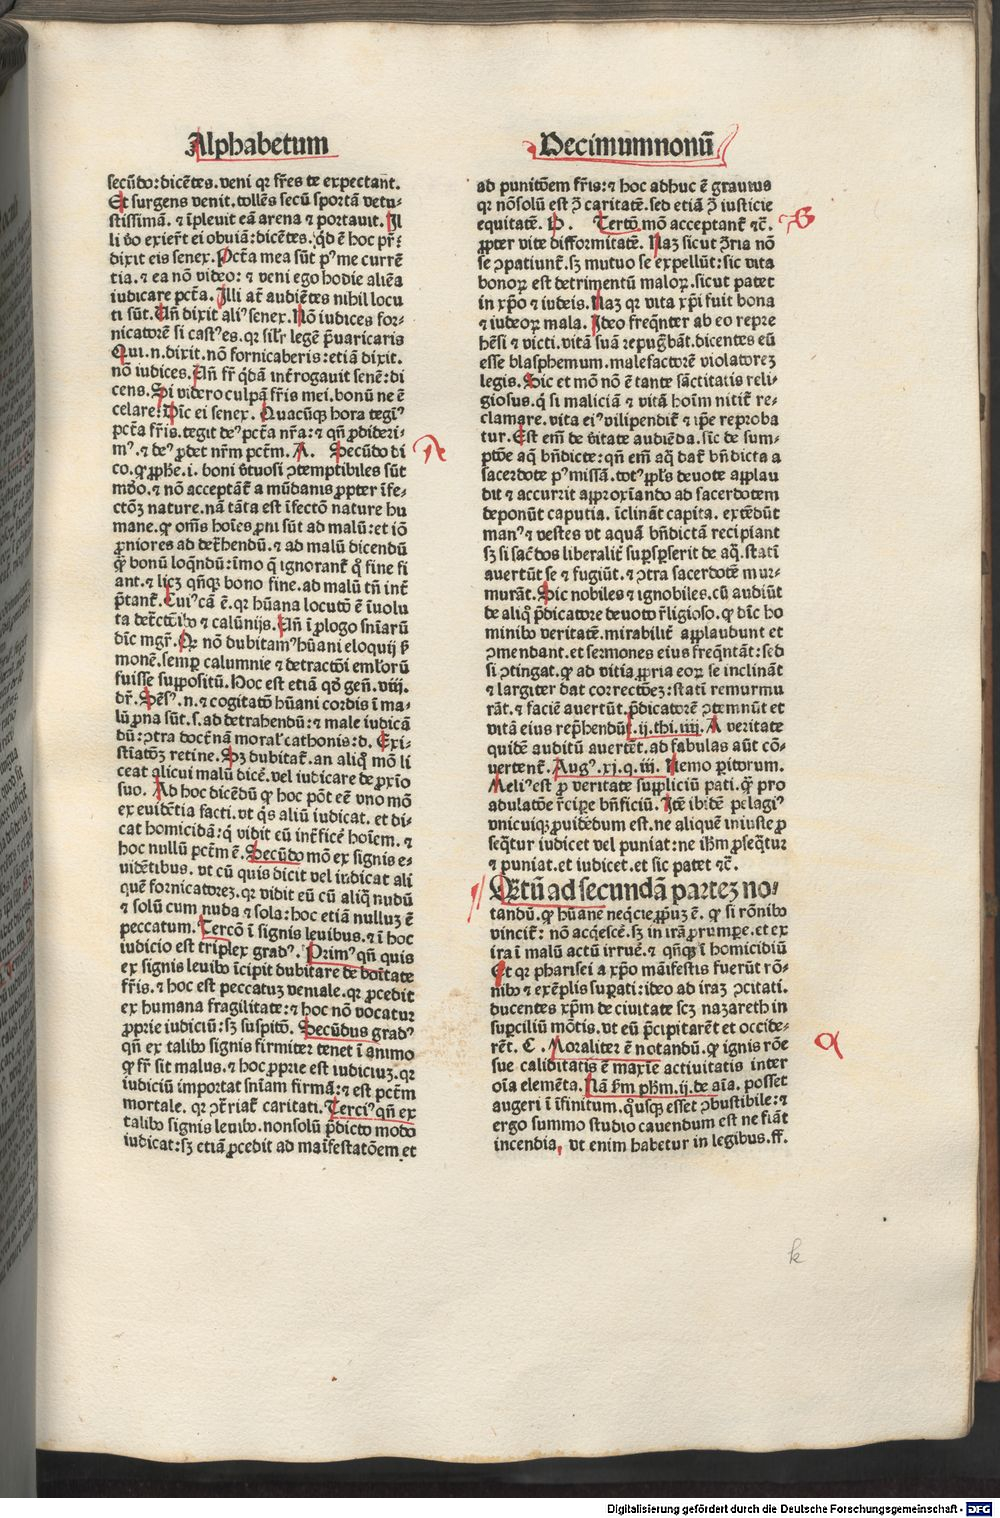 Alphabetum
Decimumnonū
secūdo: dicētes. veni qr fr̄es te expectant.
Et surgens venit. tollēs secū sportā vetu-
stissimā. ⁊ īpleuit eā arena ⁊ portauit. Il
li v̄o exier̄t ei obuiā: dicētes. qd ē hoc pr̄:
dixit eis senex. Pctā mea sūt pꝰ me currē
tia. ⁊ ea nō video: ⁊ veni ego hodie aliēa
iudicare pctā. Illi at̄ audiētes nihil locu
ti sūt. Un̄ dixit aliꝰ senex. Nō iudices for-
nicatorē si castꝰ es. qr silr̄ legē p̄uaricaris
Qui .n. dixit. nō fornicaberis: etiā dixit.
nō iudices. Un̄ fr̄ qdā int̄rogauit senē: di
cens. Si videro culpā fr̄is mei. bonū ne ē
celare: Dīc ei senex. Quacūqꝫ hora tegīꝰ
pctā fr̄is. tegit deꝰ pctā nr̄a: ⁊ qn̄ ꝓdideri-
mꝰ. ⁊ deꝰ ꝓdet nr̄m pctm̄. A. Secūdo di
co. ꝙ ꝓphe .i. boni v̄tuosi ꝯtemptibiles sūt
mūdo. ⁊ nō acceptāt̄ a mūdanis ꝓpter īfe-
ctōꝫ nature. nā tāta est īfectō nature hu
mane. ꝙ om̄s hoīes ꝓni sūt ad malū: et iō
ꝓniores ad det̄hendū. ⁊ ad malū dicendū
ꝙ̄ bonū loqndū: īmo q̄ ignorant̄ qͦ fine fi
ant. ⁊ licꝫ qn̄qꝫ bono fine. ad malū tn̄ int̄
p̄tant̄. Cuiꝰ cā ē. qr hūana locutō ē īuolu
ta det̄ctōibꝰ ⁊ calūnijs. Un̄ ī ꝓlogo snīarū
dīc mgr̄. Qr nō dubitamꝰ hūani eloquij
monē. semꝑ calumnie ⁊ detractōi emloꝝ
fuisse suppositū. Hoc est etiā qd̄ gen̄. viij.
dr̄. Sēsꝰ .n. ⁊ cogitatō hūani cordis ī ma-
lū ꝓna sūt. s. ad detrahendū: ⁊ male iudicā
dū: ꝯtra doct̄nā moralꝰ cathonis: d. Exi-
stīatōꝫ retine. Sꝫ dubitat̄. an aliqͦ mō li
ceat alicui malū dicē. vel iudicare de ꝓxīo
suo. Ad hoc dicēdū ꝙ hoc pōt eē vno mō
ex euidētia facti. vt qs aliū iudicat. et di-
cat homicidā: q̄ vidit eū int̄ficē hoīem. ⁊
hoc nullū pctm̄ ē. Secūdo mō ex signis e-
uidētibus. vt cū quis dicit vel iudicat ali
quē fornicatoreꝫ. qr vidit eū cū aliq̄ nudū
⁊ solū cum nuda ⁊ sola: hoc etiā nulluꝫ ē
peccatum. Tercō ī signis leuibus. ⁊ ī hoc
iudicio est triplex gradꝰ. Primꝰ qn̄ quis
ex signis leuibꝰ īcipit dubitare de bōitate
fr̄is. ⁊ hoc est peccatuꝫ veniale. qr ꝓcedit
ex humana fragilitate: ⁊ hoc nō vocatur
ꝓprie iudiciū: sꝫ suspitō. Secūdus gradꝰ
qn̄ ex talibꝰ signis firmiter tenet ī animo
ꝙ fr̄ sit malus. ⁊ hoc ꝓprie est iudiciuꝫ. qr
iudiciū importat snīam firmā: ⁊ est pctm̄
mortale. qr ꝯt̄riat̄ caritati. Terciꝰ qn̄ ex
talibꝰ signis leuibꝰ. nonsolū p̄dicto modo
iudicat: sꝫ etiā ꝓcedit ad maīfestatōem et
ad punitōem fr̄is: ⁊ hoc adhuc ē grauius
qr nōsolū est ꝯ̄ caritatē. sed etiā ꝯ̄ iusticie
equitatē. B. Tertō mō acceptant̄ ⁊c̄.
ꝓpter vite difformitatē. Naꝫ sicut ꝯ̄ria nō
se ꝯpatiunt̄. sꝫ mutuo se expellūt: sic vita
bonoꝝ est detrimentū maloꝝ. sicut patet
in xp̄o ⁊ iudeis. Naꝫ qr vita xp̄i fuit bona
⁊ iudeoꝝ mala. Ideo freqn̄ter ab eo repre
hēsi ⁊ victi. vitā suā repugꝰbāt. dicentes eū
esse blasphemum. malefactorē violatoreꝫ
legis. Sic et mō nō ē tante sāctitatis reli-
giosus. q̄ si maliciā ⁊ vitā hoīm nitit̄ re-
clamare. vita eiꝰ vilipendit̄ ⁊ ip̄e reproba
tur. Est em̄ de v̄itate audiēda. sīc de sum-
ptōe aq̄ bn̄dicte: qn̄ em̄ aq̄ dat̄ bn̄dicta a
sacerdote pꝰ missā. totꝰ ppl̄s deuote applau
dit ⁊ accurrit approxīando ad sacerdotem
deponūt caputia. īclināt capita. extēdūt
manꝰ ⁊ vestes vt aquā bn̄dictā recipiant
sꝫ si sac̄dos liberalit̄ supspserit de aq̄. statī
auertūt se ⁊ fugiūt. ⁊ ꝯtra sacerdotē mur-
murāt. Sic nobiles ⁊ ignobiles. cū audiūt
de aliqͦ p̄dicatore deuoto r̄ligioso. ꝙ dīc ho
minibꝰ veritatē. mirabilit̄ applaudunt et
ꝯmendant. et sermones eius freqn̄tāt: sed
si ꝯtingat. ꝙ ad vitia ꝓpria eoꝝ se inclināt
⁊ largiter dat correctōeꝫ: statī remurmu
rāt. ⁊ faciē auertūt. p̄dicatorē ꝯtemnūt et
vitā eius rep̄hendūt. ij. thi. iiij. A veritate
quidē auditū auertēt. ad fabulas aūt cō-
uertent̄. Augꝰ. xj. q. iij. Nemo peritorum.
Meliꝰ est ꝓ veritate suppliciū pati. ꝙ̄ pro
adulatōe r̄cipe bn̄ficiū. Itē ibidē pelagiꝰ
vnicuiqꝫ ꝓuidēdum est. ne aliquē iniuste ꝑ
seqt̄ur iudicet vel puniat: ne ihm̄ ꝑseqt̄ur
⁊ puniat. et iudicet. et sic patet ⁊c̄.
Qētū ad secundā parteꝫ no-
tandū. ꝙ hūane neqcie ꝓpuꝫ ē. ꝙ si rōnibꝰ
vincit̄: nō acqescē. sꝫ in irā ꝓrumpe. et ex
ira ī malū actū irruē. ⁊ qn̄qꝫ ī homicidiū
Et qr pharisei a xp̄o māifestis fuerūt rō-
nibꝰ ⁊ exēplis suꝑati: ideo ad iraꝫ ꝯcitati.
ducentes xp̄m de ciuitate scꝫ nazareth in
suꝑciliū mōtis. vt eū p̄cipitarēt et occide-
rēt. C. Moraliter ē notandū. ꝙ ignis rōe
sue caliditatis ē maxīe actiuitatis inter
oīa elemēta. Nā ẜm phm̄. ij. de aīa. posset
augeri ī īfinitum. qͦusqꝫ esset ꝯbustibile: ⁊
ergo summo studio cauendum est ne fiāt
incendia, vt enim habetur in legibus. ff.
k
Digitalisierung gefördert durch die Deutsche Forschungsgemeinschaft - DFG